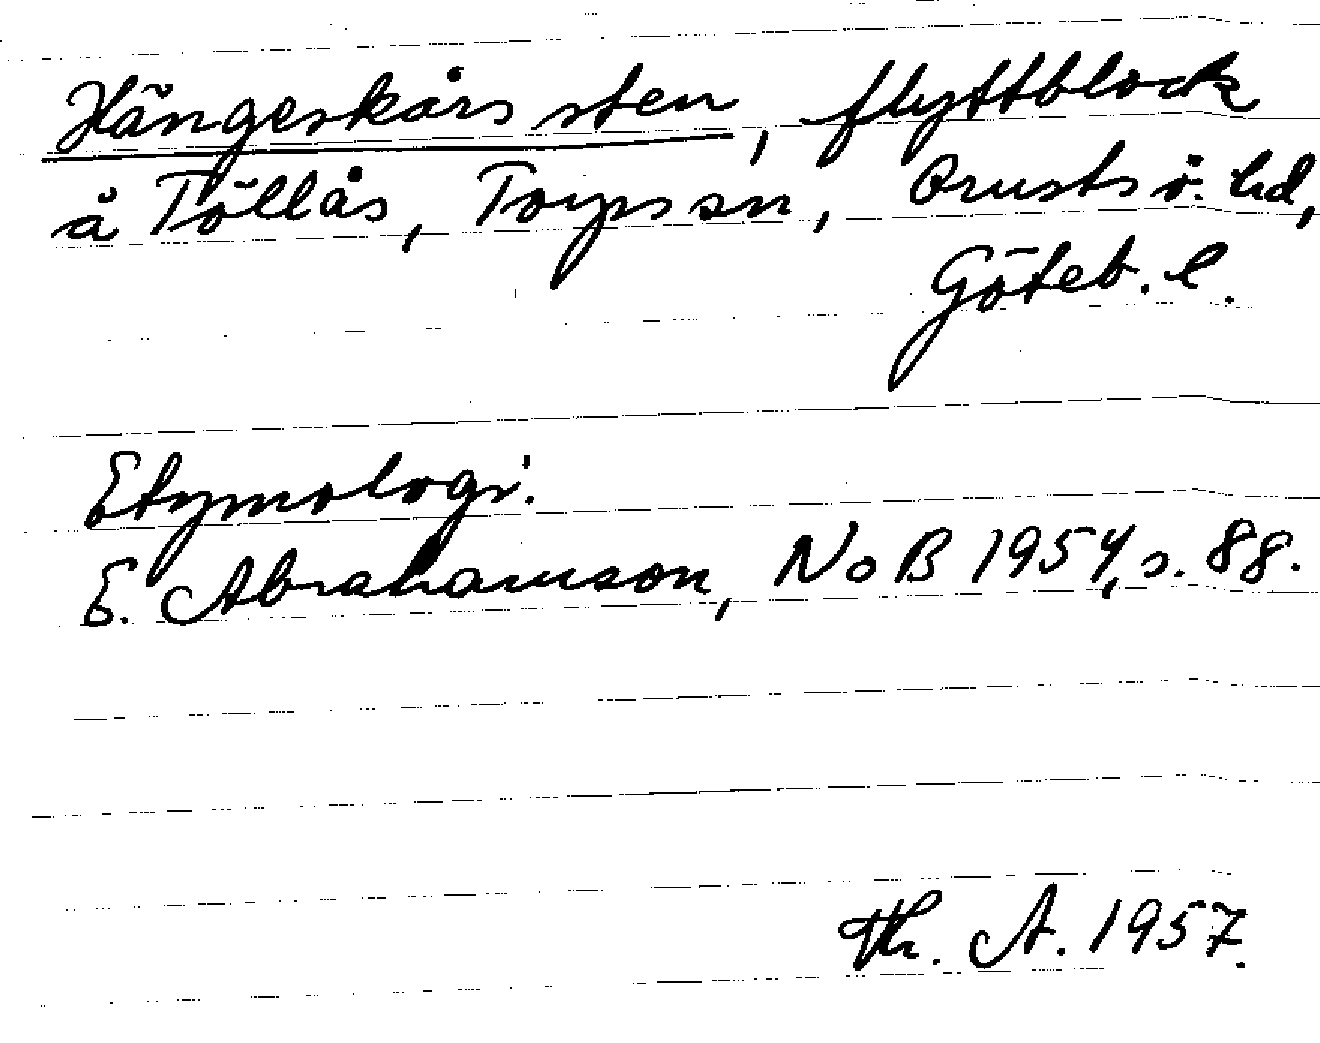 Hängeskårs sten, flyttblock
å Töllås, Torps sn, Orusts ö. hd,
Göteb. l.
Etymologi:
E. Abrahamson, NoB 1954, s. 88.
Th. A. 1957.